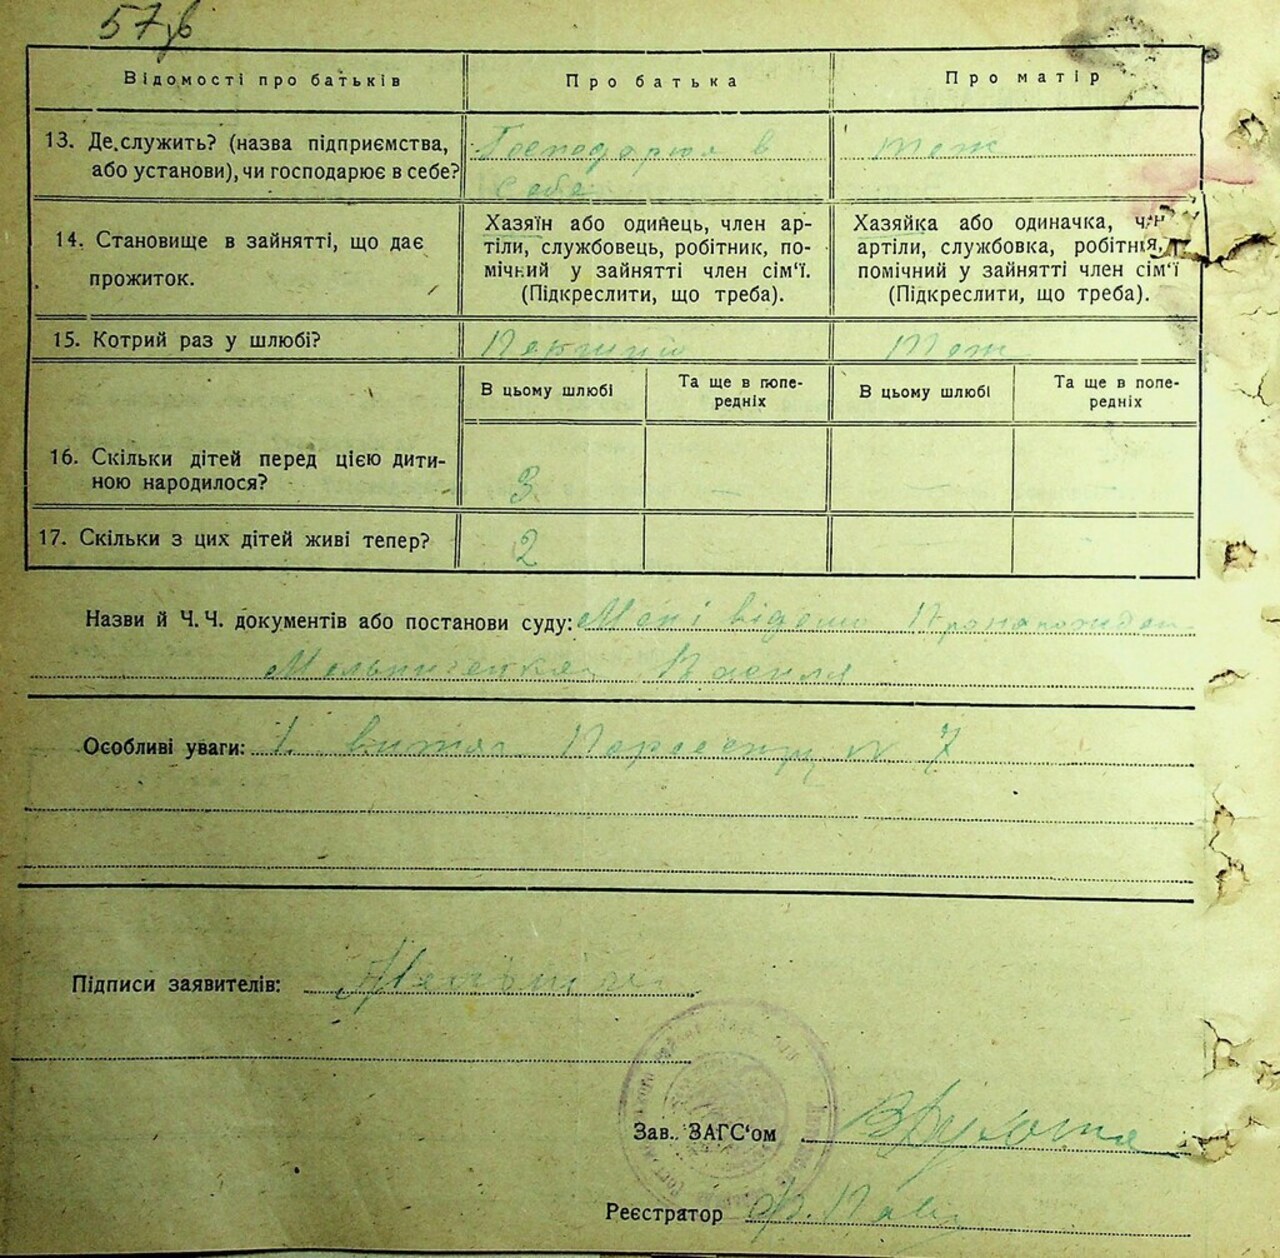 57зв
Відомості про батьків
Про батька
Про матір
13. Де служить? (назва підприємства,
або установи), чи господарює в себе?
Господарює в
себе
тож
14. Становище в зайнятті, що дає
прожиток.
Хазяїн або одинець, член ар-
тіли, службовець, робітник, по-
мічний у зайнятті член сім'ї.
(Підкреслити, що треба).
Хазяйка або одиначка, член
артіли, службовка, робітниця,
помічний у зайнятті член сім'ї
(Підкреслити, що треба).
15. Котрий раз у шлюбі?
Перший
Тож
В цьому шлюбі
Та ще в попе-
редніх
В цьому шлюбі
Та ще в попе-
редніх
16. Скільки дітей перед цією дити-
ною народилося?
3
—
—
—
17. Скільки з цих дітей живі тепер?
2
Назви й Ч. Ч. документів або постанови суду: Мені відомо
Мельниченка
Особливі уваги: 1. витяг По реєстру № 7
Підписи заявителів:
Зав. ЗАГС'ом
Реєстратор